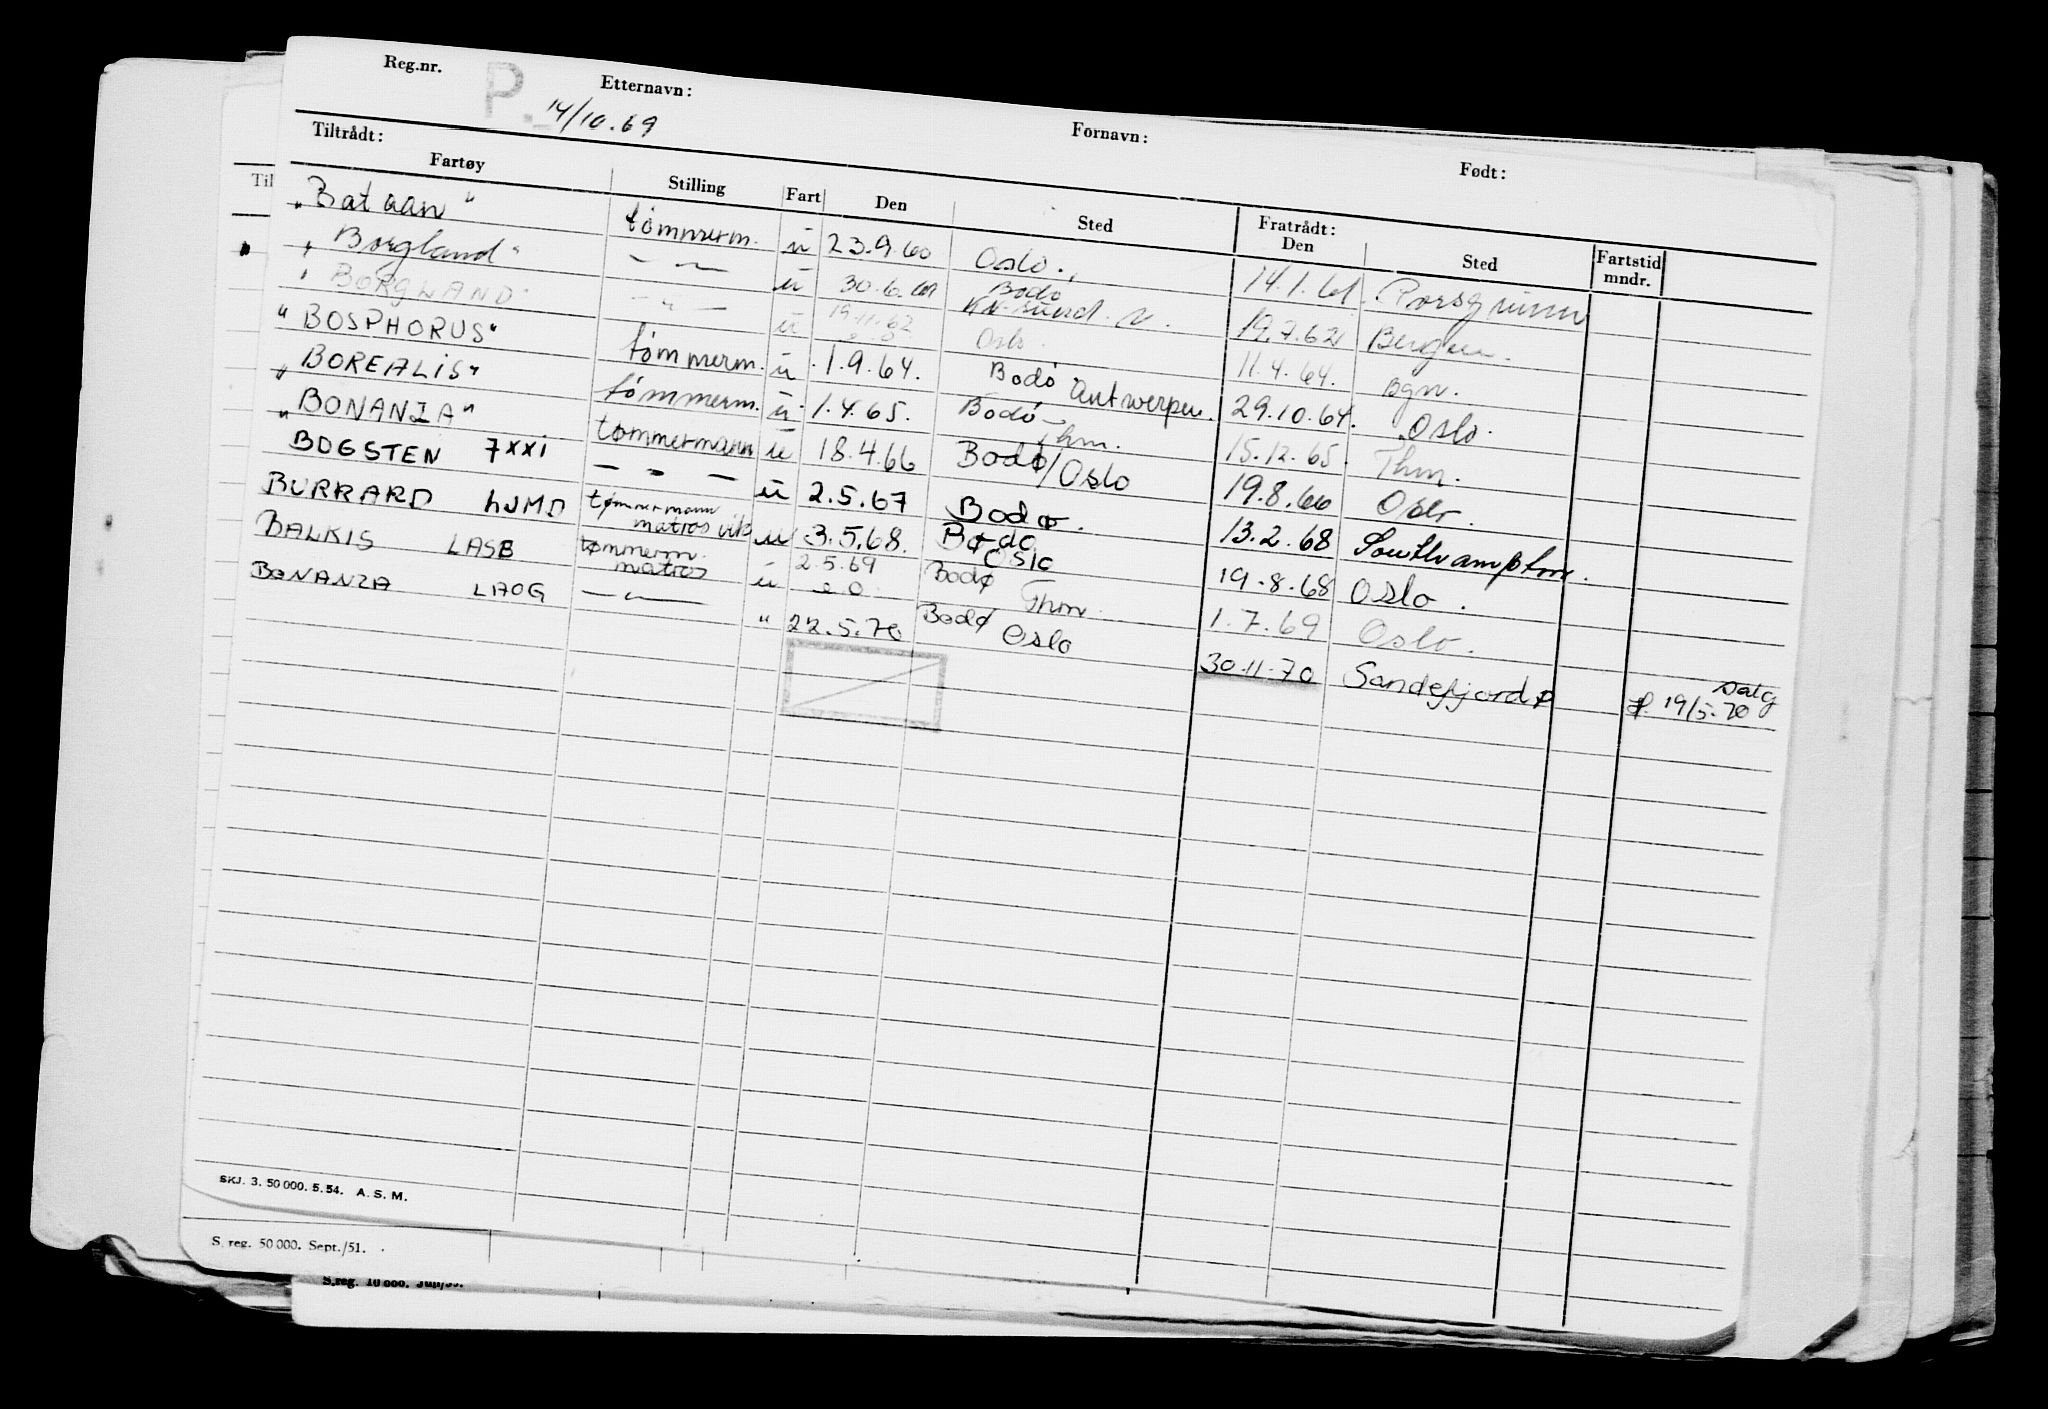 Reg.nr. P. Etternavn: Fornavn: Født:
14/10.69
Tiltrådt: Fratrådt:
Fartøy Stilling Fart Den Sted Den Sted Fartstid mndr.
Til
"Bataan" tømmerm. u 23.9.60 Oslo. 14.1.61. Porsgrunn
"Borgland" — " — u 30.6.61 Bodø Kr.sund. N. 19.7.62 Bergen.
"BORGLAND" — " — u 19.11.62 Oslo. 11.4.64. Bgn.
"BOSPHORUS" tømmerm. u 1.9.64. Bodø Antwerpen. 29.10.64. Oslo.
"BOREALIS" tømmerm. u 1.4.65. Bodø — Thm. 15.12.65. Thm.
"BONANZA" tømmermann u 18.4.66 Bodø/Oslo 19.8.66 Oslo.
BOGSTEN 7XXI — " — u 2.5.67 Bodø. 13.2.68 Southampton.
BURRARD LJMD tømmermann matros vik u 3.5.68. Bodø Oslo 19.8.68 Oslo.
BALKIS LASB tømmerm. matros u 2.5.69 Bodø Thm. 1.7.69 Oslo.
BONANZA LAOG — " — " 22.5.70 Bodø Oslo 30.11.70 Sandefjord salg
P. 19/5.70
SKJ. 3. 50 000. 5.54. A. S. M.
S. reg. 50 000. Sept./51.
S. reg. 10 000.